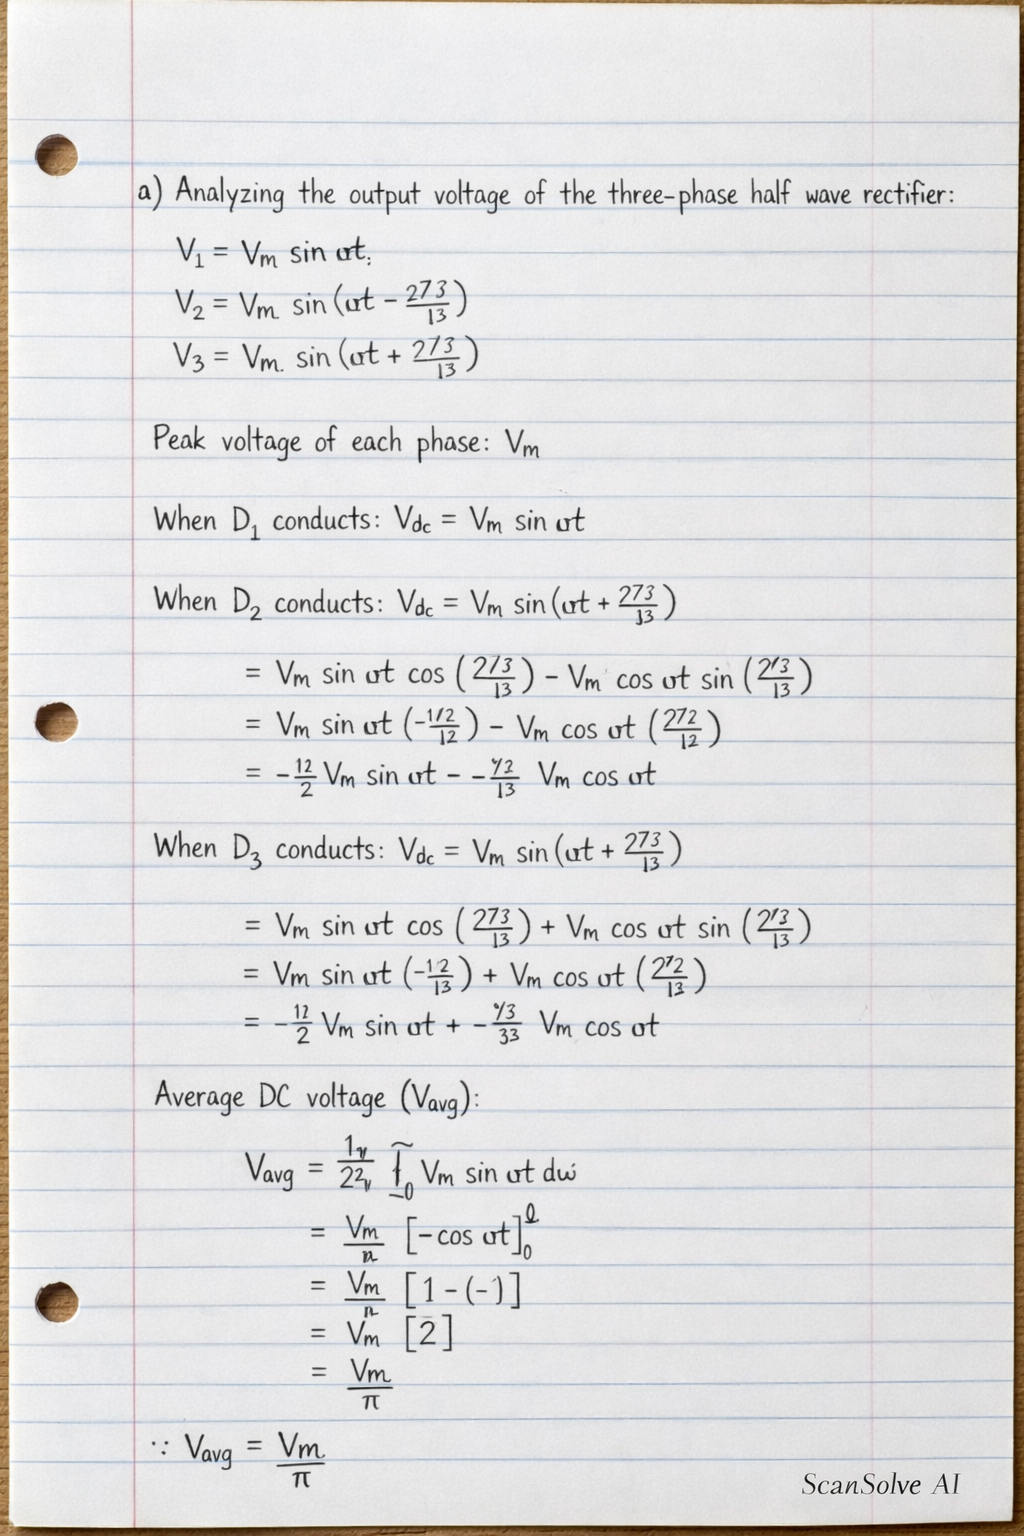 a) Analyzing the output voltage of the three-phase half wave rectifier:
V₁ = Vm sin ωt;
V₂ = Vm. sin (ωt - 273/13)
V₃ = Vm. sin (ωt + 273/13)
Peak voltage of each phase: Vm
When D₁ conducts: Vdc = Vm sin ωt
When D₂ conducts: Vdc = Vm sin (ωt + 273/13)
= Vm sin ωt cos (273/13) - Vm cos ωt sin (2/3/13)
= Vm sin ωt (-1/2/12) - Vm cos ωt (272/12)
= -12/2 Vm sin ωt - - /2/13 Vm cos ωt
When D₃ conducts: Vdc = Vm sin (ωt + 273/13)
= Vm sin ωt cos (273/13) + Vm cos ωt sin (2/3/13)
= Vm sin ωt (-12/13) + Vm cos ωt (272/13)
= -12/2 Vm sin ωt + - /3/33 Vm cos ωt
Average DC voltage (Vavg):
Vavg = Vm sin ωt dω
= Vm [-cos ωt]₀
= Vm [1 - (-)]
= Vm [2]
= Vm/π
∵ Vavg = Vm/π
ScanSolve AI